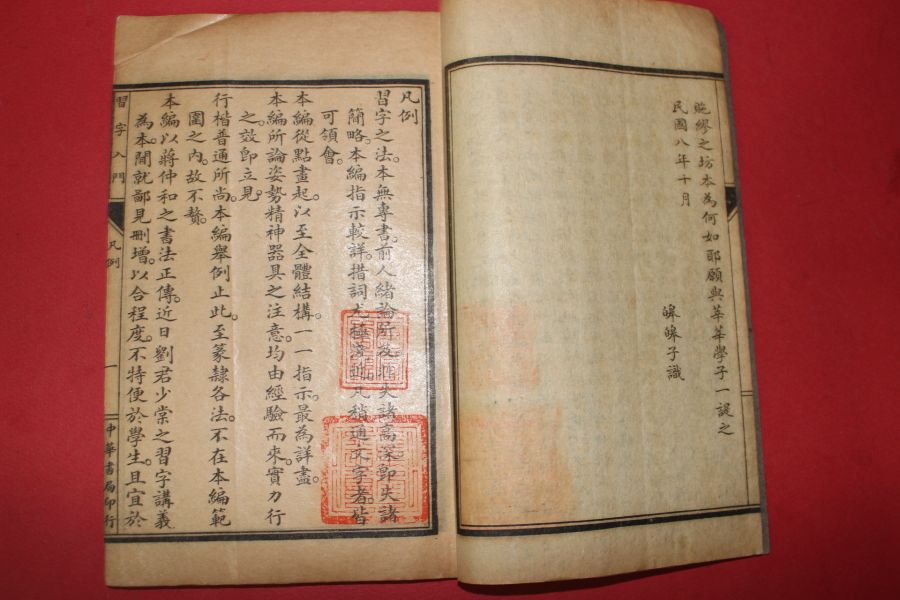 貤繆之坊本為何如耶願與莘莘學子一諟之
民國八年十月
皞皞子識
凡例
習字之法。本無專書。前人緒論所及。非失諸高深。卽失諸
簡略。本編指示較詳。措詞尤極淺近。凡稍通文字者。皆
可領會。
本編從點畫起。以至全體結構。一一指示。最為詳盡。
本編所論姿勢精神器具之注意。均由經驗而來。實力行
之。效卽立見。
行楷普通所尚。本編舉例止此。至篆隷各法。不在本編範
圍之內。故不贅。
本編以蔣仲和之書法正傳。近日劉君少棠之習字講義
為本。間就鄙見刪增。以合程度。不特便於學生。且宜於
習字入門
凡例
一
中華書局印行